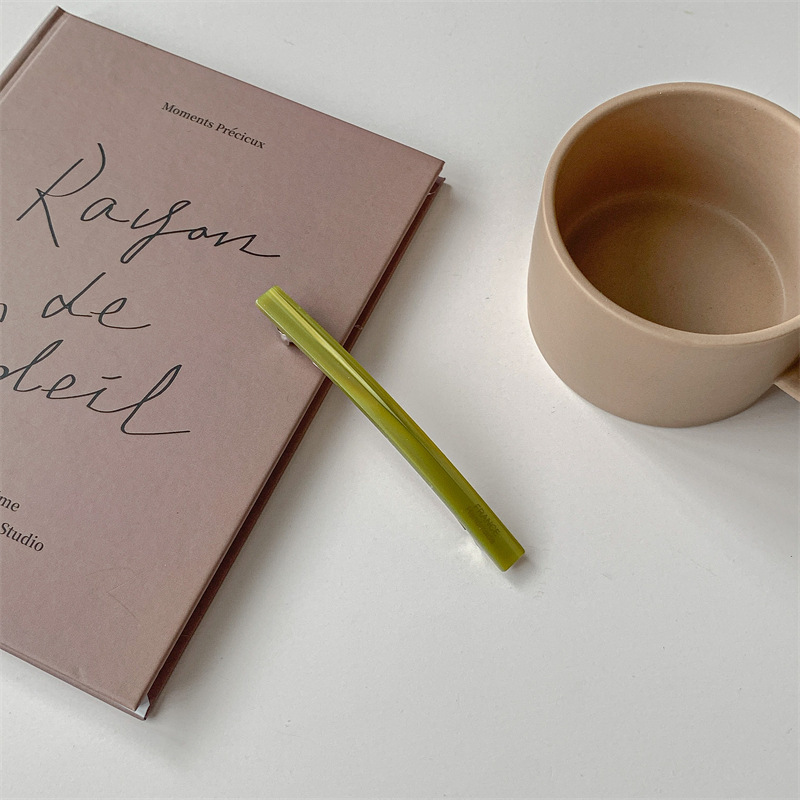 Moments Précieux
Rayon
de
deil
me
Studio
FRANCE